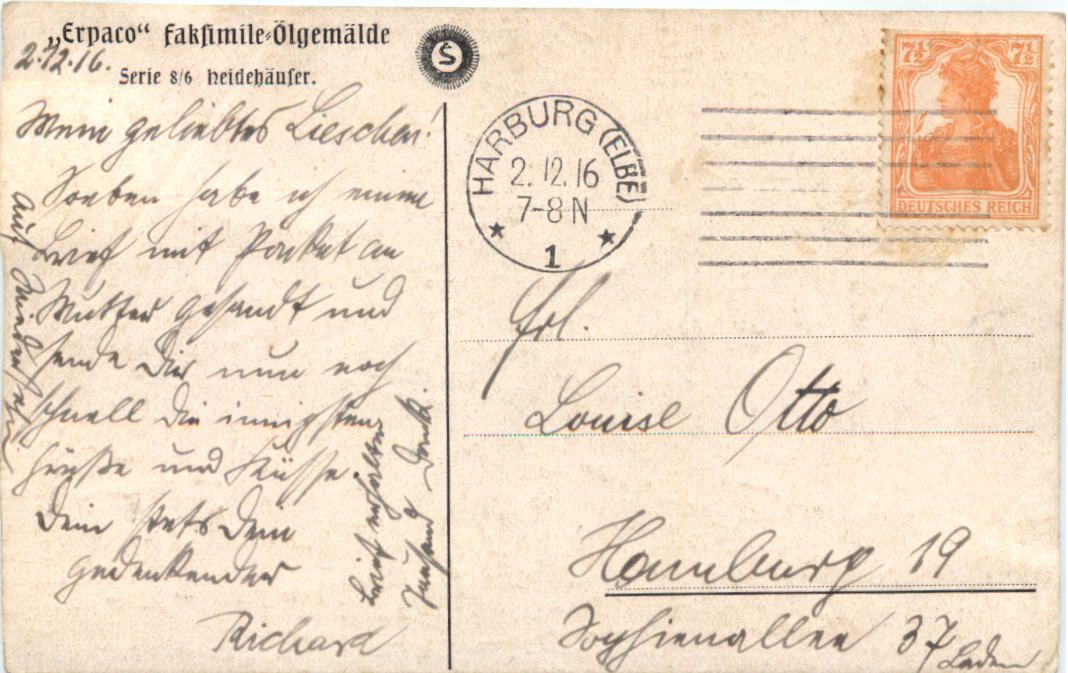 „Erpaco“ Faksimile-Ölgemälde
Serie 8/6 Heidehäuser.
2.12.16.
Mein geliebtes Lieschen!
Soeben habe ich einen
Brief mit Packet an
Mutter gesandt und
sende Dir nun noch
schnell die innigsten
Grüße und Küsse.
Dein stets Dein
gedenkender
Richard
Auf Wiedersehn
Brief erhalten
Tausend Dank.
S
HARBURG (ELBE)
2.12.16
7-8N
1
7½ 7½
DEUTSCHES REICH
Frl.
Louise Otto
Hamburg 19
Sophienallee 37
Laden